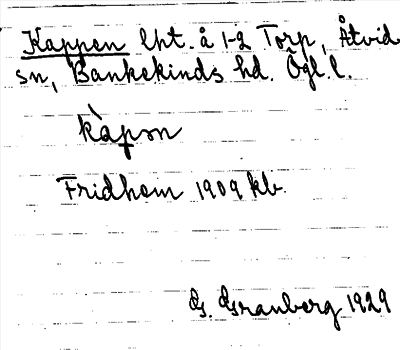 Kappen lht. å 1-2 Torp, Åtvid
sn, Bankekinds hd. Ögl. l.
kàpən
Fridhem 1909 kb.
G. Granberg 1929